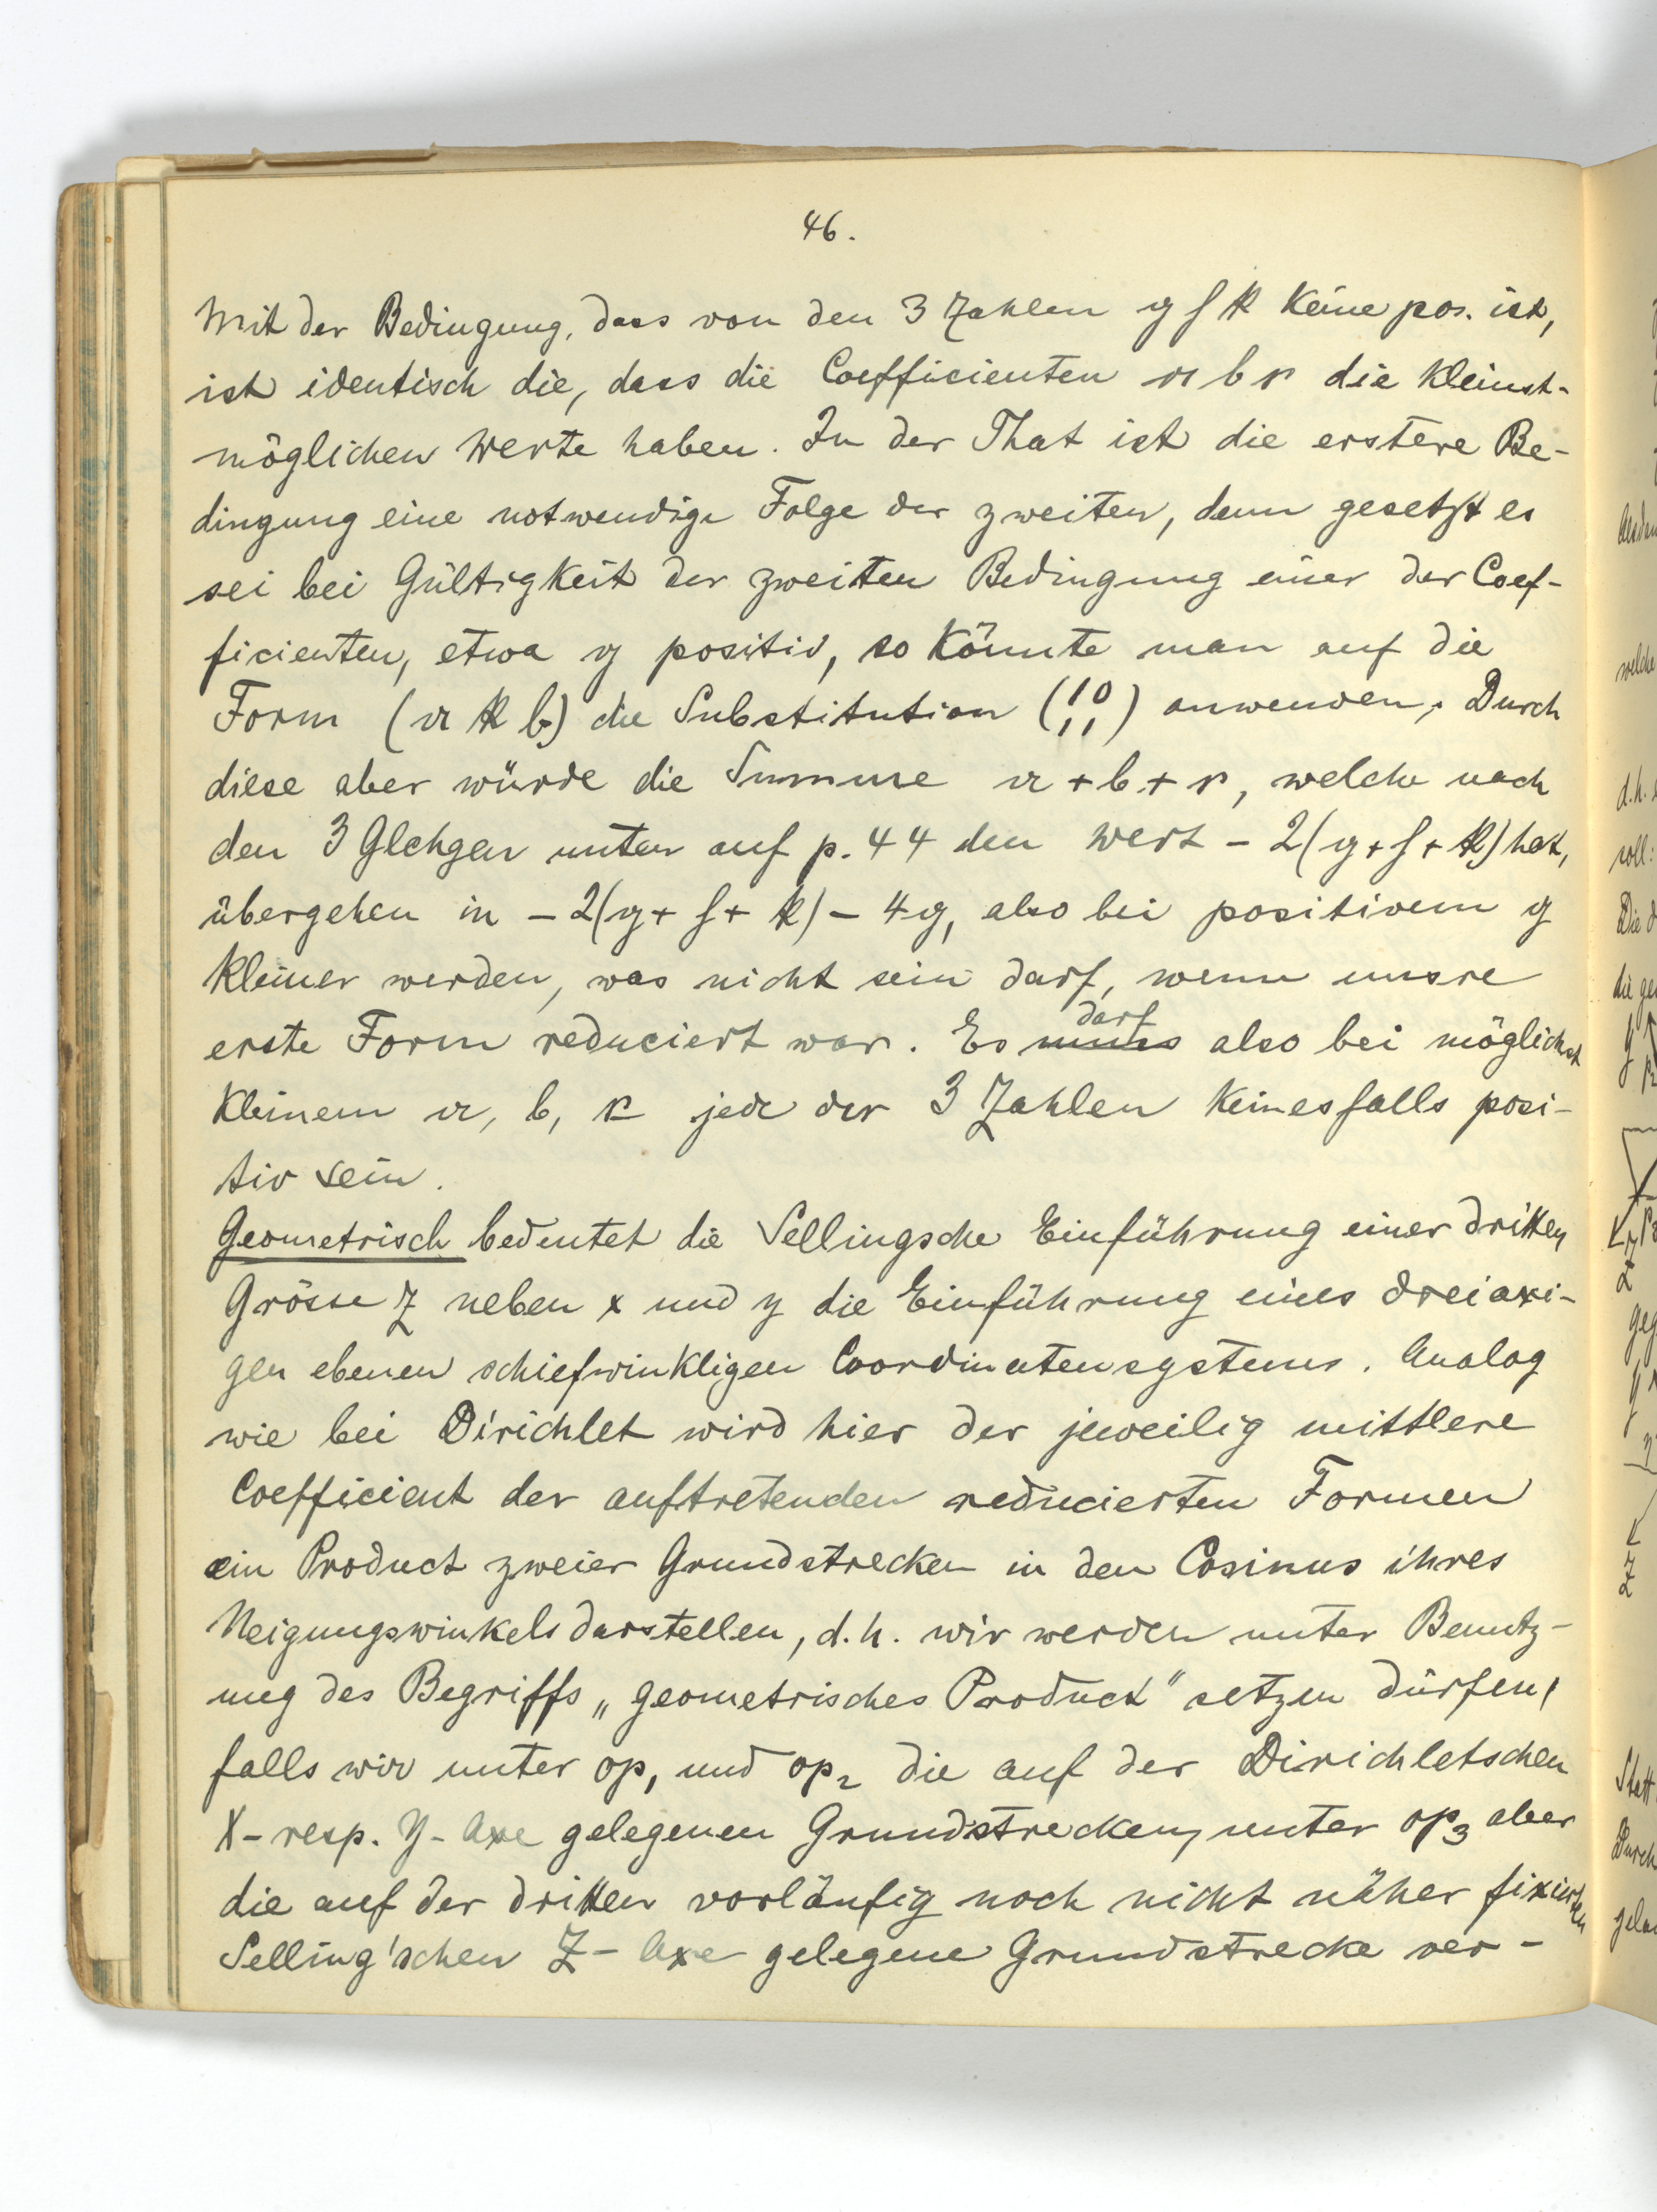 46.
Mit der Bedingung, dass von den 3 Zahlen g h k keine pos. ist,
ist identisch die, dass die Coefficienten a b c die kleinst-
möglichen Werte haben. In der That ist die erstere Be-
dingung eine notwendige Folge der zweiten, denn gesetzt es
sei bei Gültigkeit der zweiten Bedingung einer der Coef-
ficienten, etwa g positiv, so könnte man auf die
Form (a k b) die Substitution (10 11) anwenden. Durch
diese aber würde die Summe a + b + c, welche nach
den 3 Glchgen unten auf p. 44 den Wert - 2(g + h + k) hat,
übergehen in - 2(g + h + k) - 4g, also bei positivem g
kleiner werden, was nicht sein darf, wenn unsre
erste Form reduciert war. Es muss darf also bei möglichst
kleinem a, b, c jede der 3 Zahlen keinesfalls posi-
tiv sein.
Geometrisch bedeutet die Sellingsche Einführung einer dritten
Grösse Z neben x und y die Einführung eines dreiaxi-
gen ebenen schiefwinkligen Coordinatensystems. Analog
wie bei Dirichlet wird hier der jeweilig mittlere
Coefficient der auftretenden reducierten Formen
ein Product zweier Grundstrecken in den Cosinus ihres
Neigungswinkels darstellen, d.h. wir werden unter Benutz-
ung des Begriffs „geometrisches Product" setzen dürfen,
falls wir unter op₁ und op₂ die auf der Dirichletschen
X- resp. Y- Axe gelegenen Grundstrecken, unter op₃ aber
die auf der dritten vorläufig noch nicht näher fixierten
Selling'schen Z- Axe gelegene Grundstrecke ver-